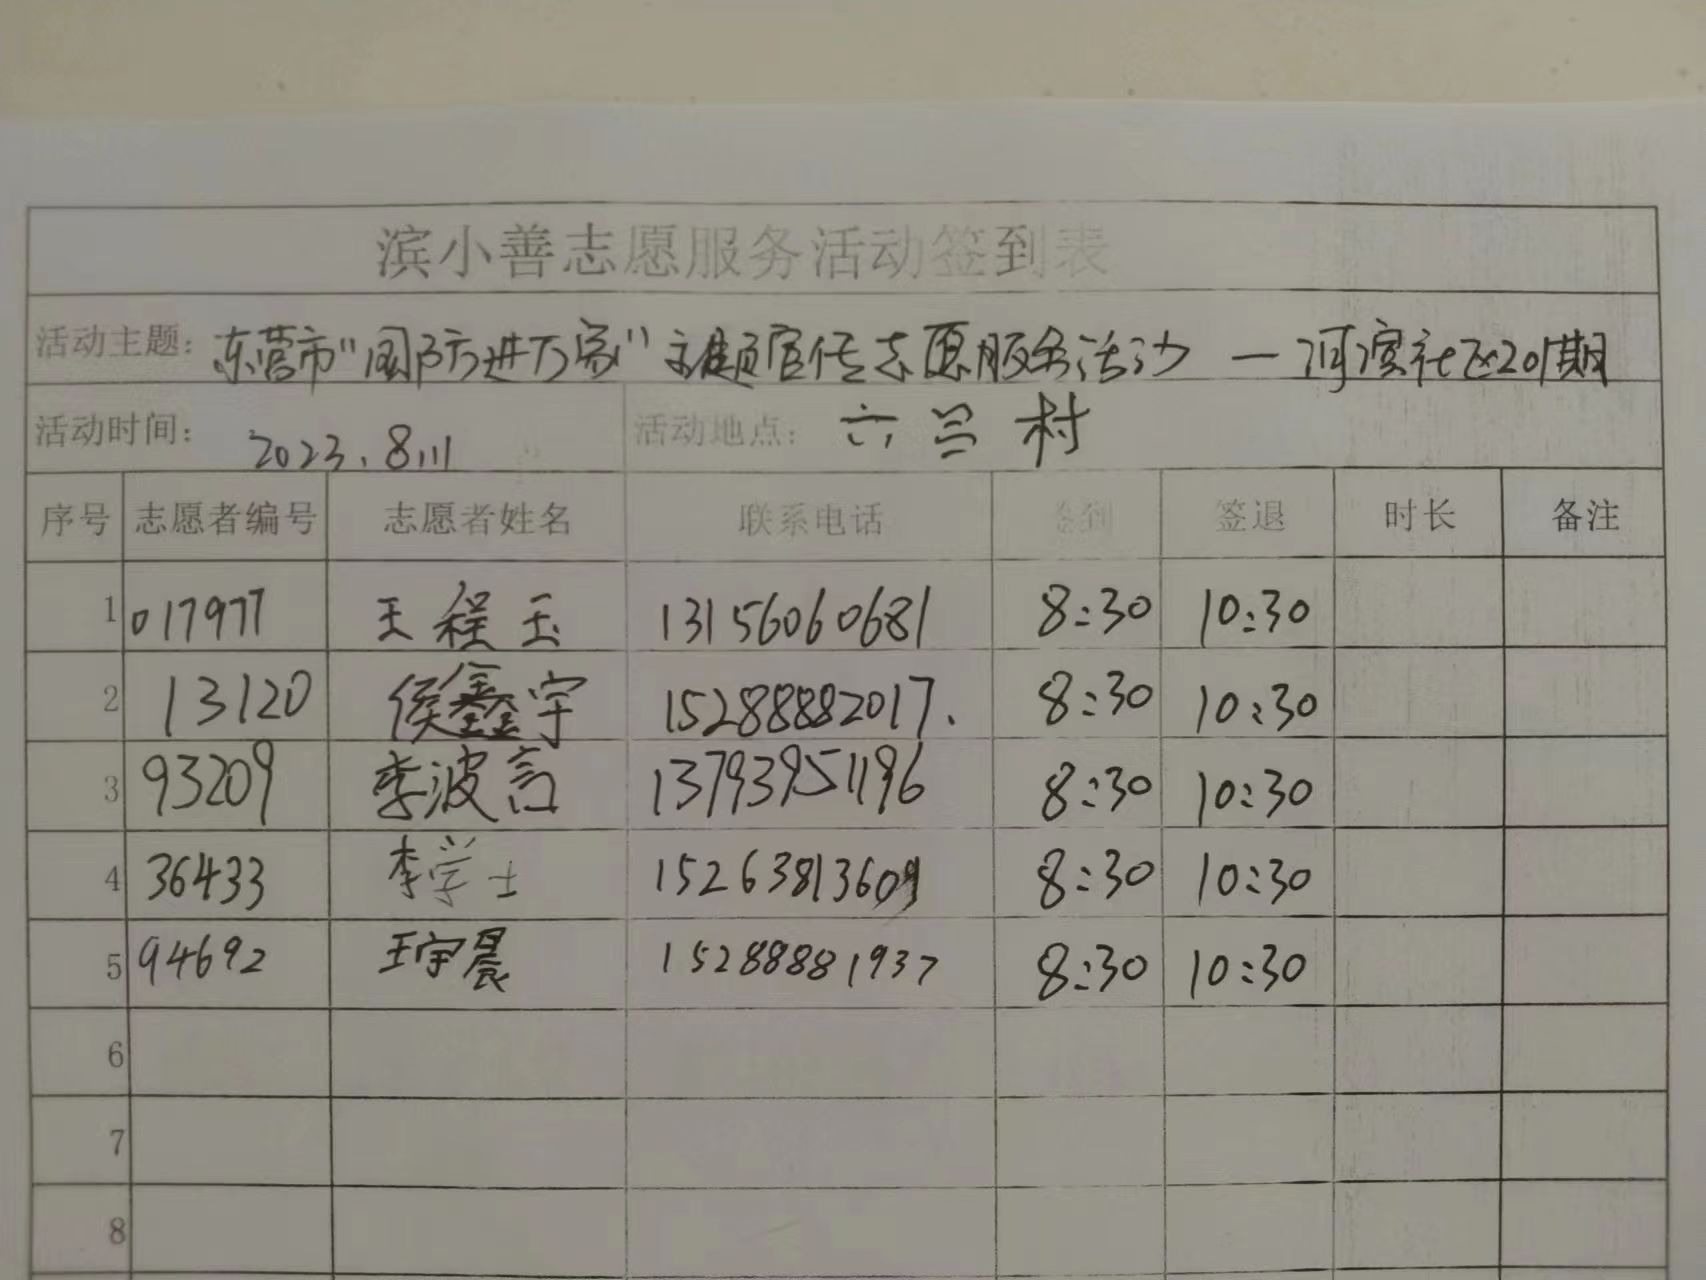 滨小善志愿服务活动签到表
活动主题: 东营市"国防进万家"主题宣传志愿服务活动 — 河滨社区201期
活动时间: 2023.8.11 活动地点: 六合村
序号 志愿者编号 志愿者姓名 联系电话 签到 签退 时长 备注
1 017977 王程玉 13156060681 8:30 10:30
2 13120 侯鑫宇 15288882017. 8:30 10:30
3 93209 李波言 13793951196 8:30 10:30
4 36433 李学士 15263813609 8:30 10:30
5 94692 王宇晨 15288881937 8:30 10:30
6
7
8